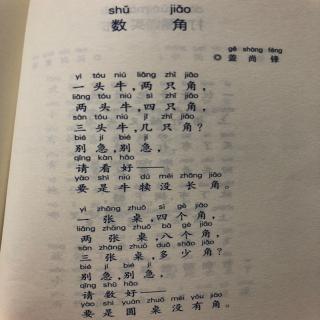 shǔ jiǎo
数 角
gě shàng fēng
◎盖尚锋
yì tóu niú liǎng zhī jiǎo
一头牛，两只角，
liǎng tóu niú sì zhī jiǎo
两头牛，四只角，
sān tóu niú jǐ zhī jiǎo
三头牛，几只角？
bié jí bié jí
别急，别急，
qǐng kàn hǎo
请看好——
yào shi niú dú méi zhǎng jiǎo
要是牛犊没长角。
yì zhāng zhuō sì gè jiǎo
一张桌，四个角，
liǎng zhāng zhuō bā gè jiǎo
两张桌，八个角，
sān zhāng zhuō duō shǎo jiǎo
三张桌，多少角？
bié jí bié jí
别急，别急，
qǐng shǔ hǎo
请数好——
yào shi yuán zhuō méi yǒu jiǎo
要是圆桌没有角。